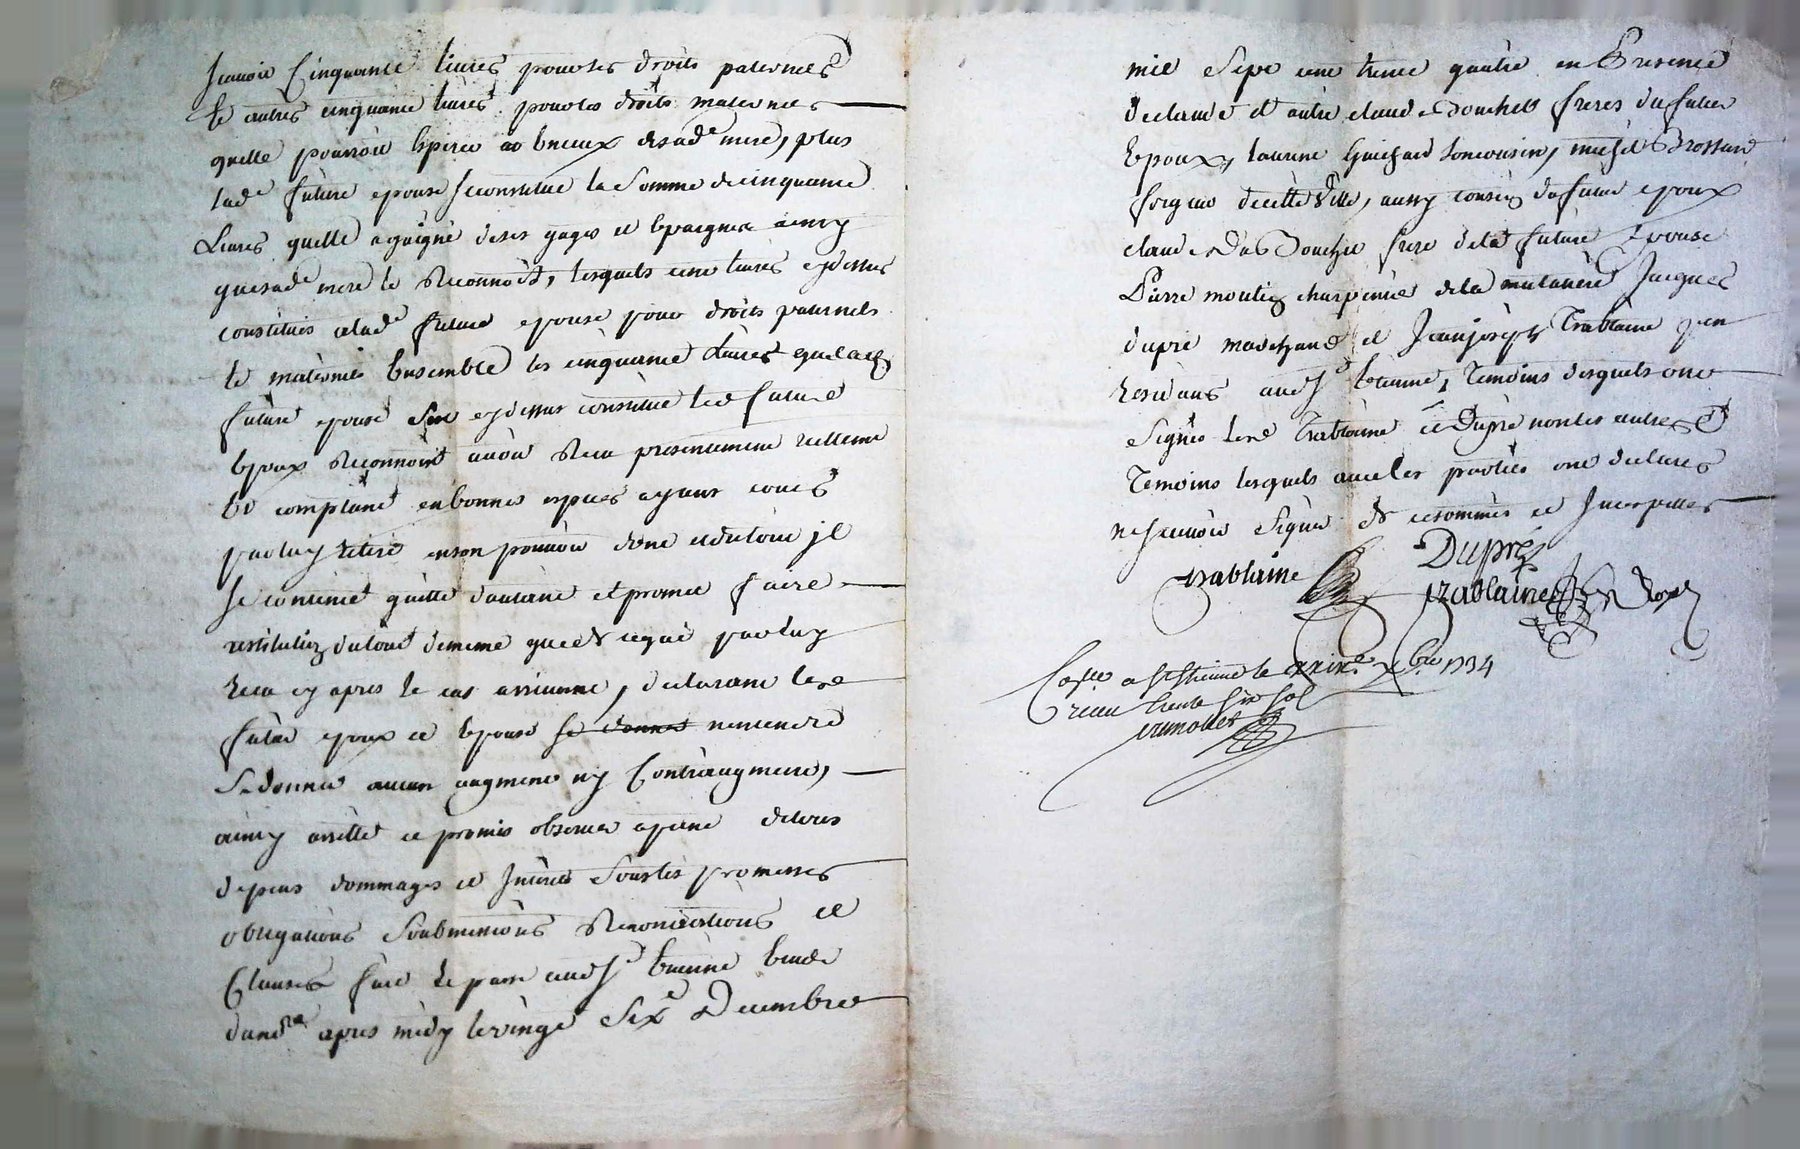 scauoir Cinquante liures pour les droits paternels
et autres cinquante liures pour les droits maternels
quelle pourroit esperer es biens desad.e mere, plus
lad.e future epouse se constitue la somme de cinquante
Liures quelle a gaigné de ses gages et epargnes ainsy
que sad.e mere le reconnoit, lesquels cent liures cy dessus
constitués a lad.e future epouse pour droits paternels
et maternels ensemble les cinquante liures que lad.e
future epouse sest cy dessus constitué led futur
epoux reconnoit auoir receu presentement reellement
et comptant en bonnes especes ayant cours
par luy retiré en son pouuoir dont et du tout jl
se contente quitte dautant et promet faire
restitution du tout de meme que de ce qui par luy
receu cy apres le cas arriuant, declarant lesd
futur epoux et epouse se donner nentendre
se donner aucun augment ny Contraugment,
ainsy arretté et promis obseruer a peine de tous
depens dommages et Interets sous les promesses
obligations soubmissions renonciations et
Clauses fait et passé aud S.t etienne etude
dud n.re apres midy le vingt six.e Decembre
mil sept cent trente quatre en Presence
de claude et autre claude Douchet freres du futur
Epoux, laurent Guichard son cousin, michel Brossard
forgeur de cette Ville, aussy cousin du futur epoux
claude Du Douchet frere de la future Epouse
Pierre moulin charpentier de la mulatiere Jacques
dupré marchand et Jean joseph Trablaine p.en
residans aud S.t etienne, Temoins desquels ont
signés lesd Trablaine et Dupré non les autres
Temoins lesquels auec les parties ont declarés
ne scauoir signer de ce sommés et Interpellés
Trablaine Dupré
Trablaine
Con.llé a S.t Etienne le xbre 1734
receu trente six sol